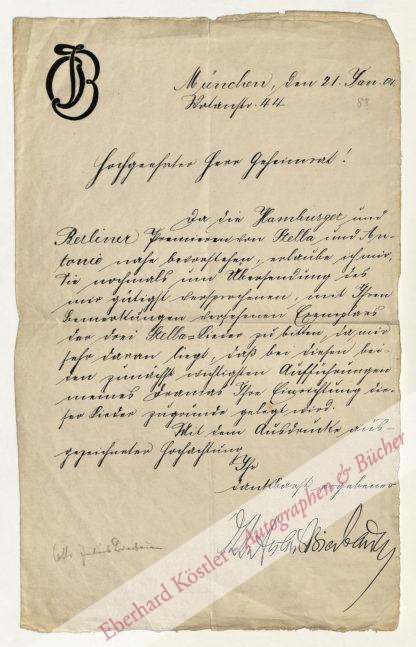 München, den 21. Jan. 04.
Wotanstr. 44
88
Hochgeehrter Herr Geheimrat!
Da die Hamburger und
Berliner Premieren von Stella und An-
tonie nahe bevorstehen, erlaube ich mir,
Sie nochmals um Übersendung des
mir gütigst versprochenen, mit Ihren
Bemerkungen versehenen Exemplars
der drei Stella-Lieder zu bitten, da mir
sehr daran liegt, daß bei diesen bei-
den zunächst wichtigsten Aufführungen
meines Dramas Ihre Einrichtung die-
ser Lieder zugrunde gelegt wird.
Mit dem Ausdrucke aus-
gezeichneter Hochachtung
Ihr
dankbarst ergebener
Otto Julius Bierbaum
Otto Julius Bierbaum
Eberhard Köstler - Autographen & Bücher